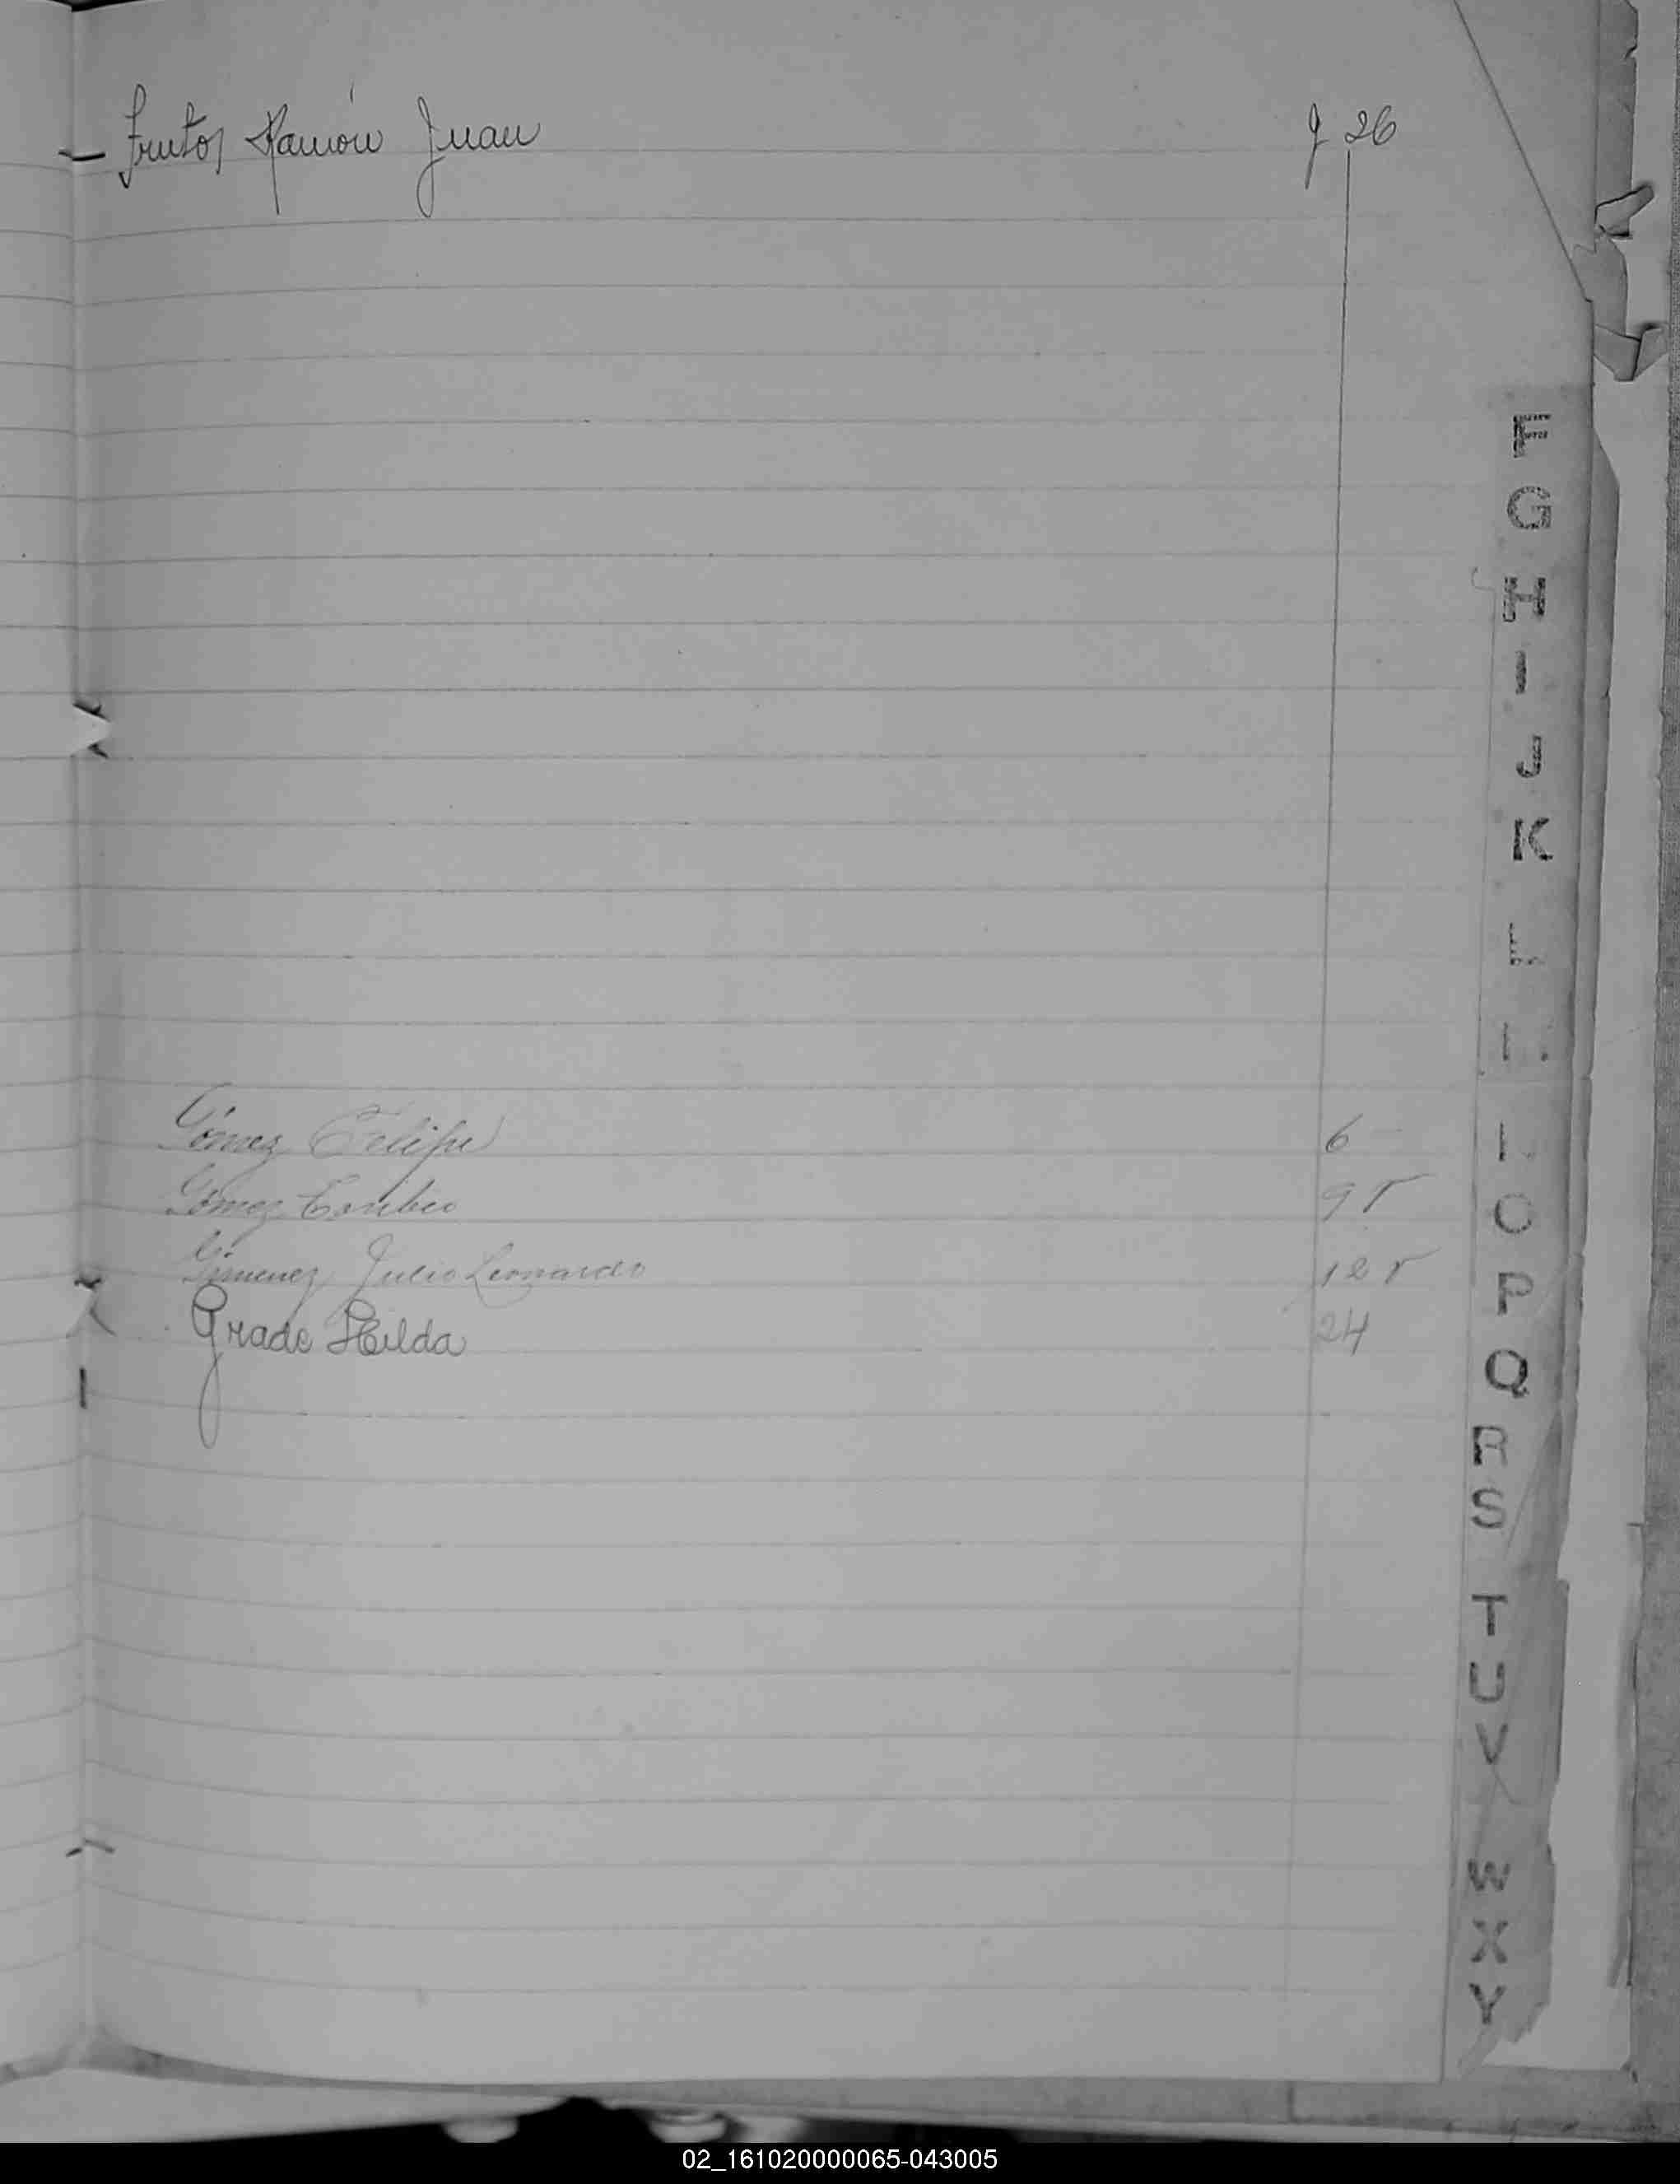 Frutos Ramón Juan 26
Gómez Felipe 6
Gómez 9
Gimenez Julio Leonardo 12
Grade Hilda 24
F
G
H
I
J
K
L
O
P
Q
R
S
T
U
V
W
X
Y
02_161020000065-043005